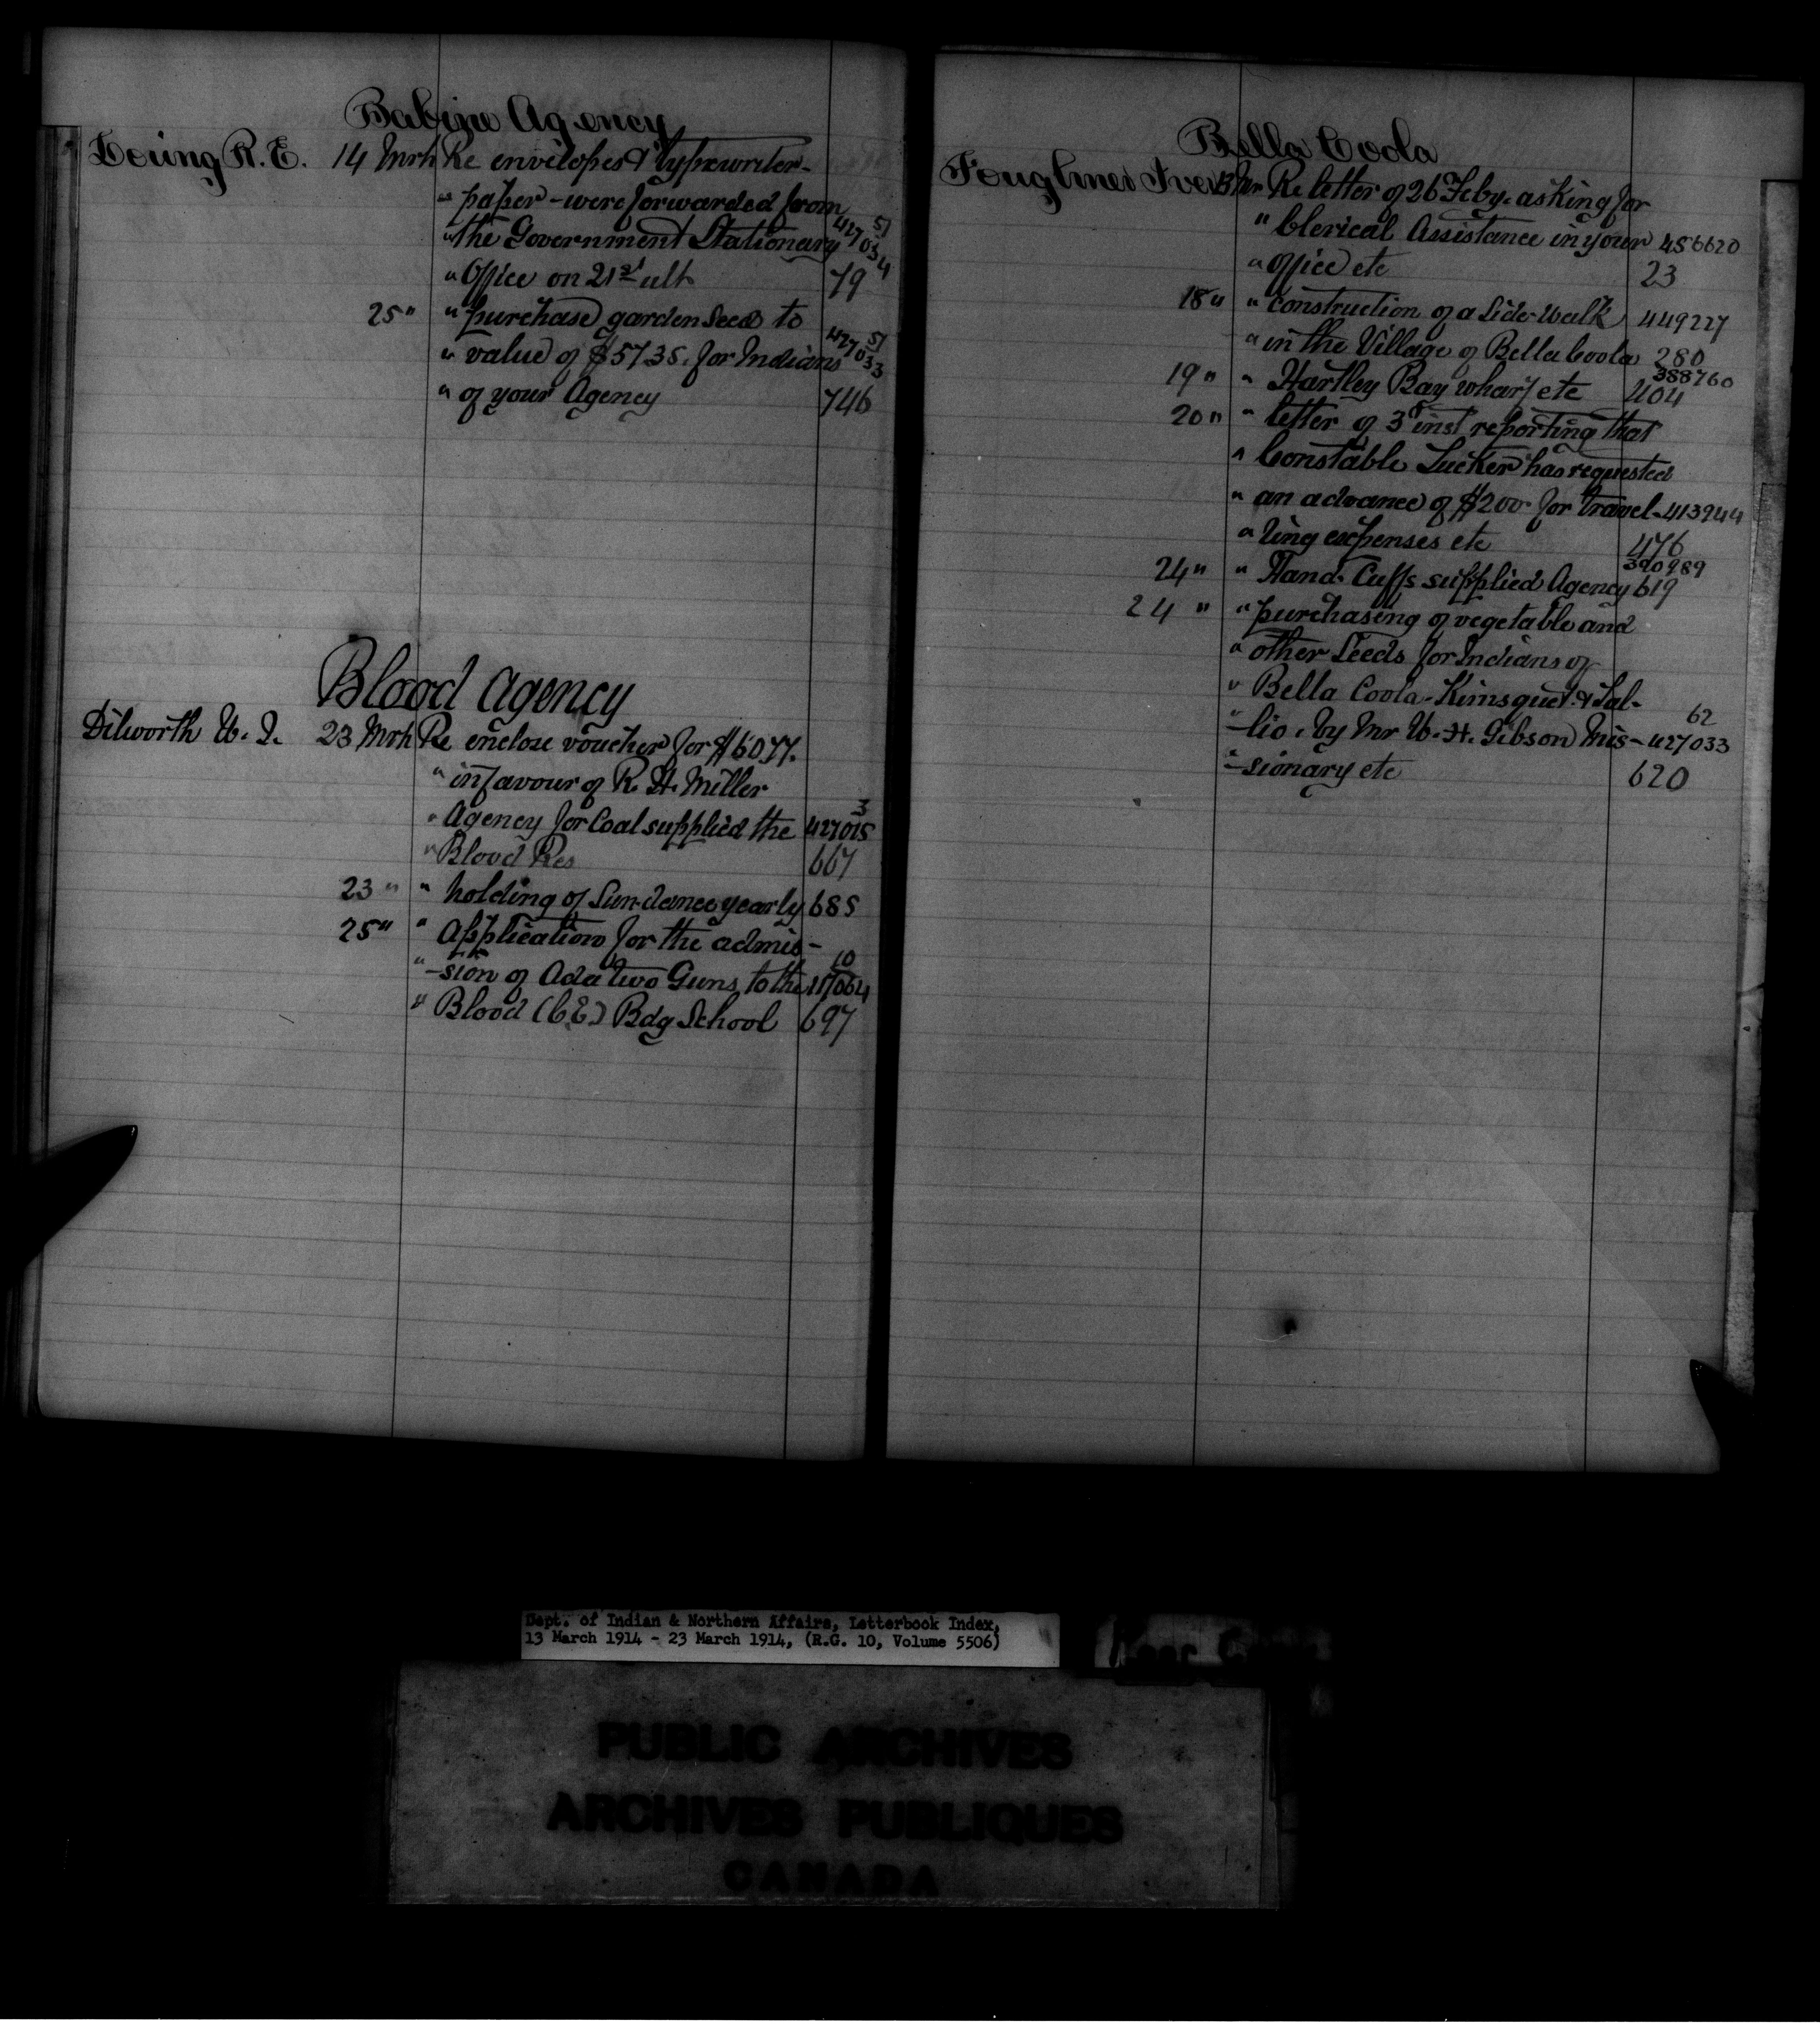 Babine Agency
Loring R. E. 14 Mrh Re envelopes & typewriter-
" paper - were forwarded from 51
" the Government Stationary 427034
" Office on 21st ult 79
25 " " purchase garden seed to 51
" value of $57.35. for Indians 427033
" of your Agency 746
Blood Agency
Dilworth W. J. 23 Mrh Re enclose voucher for $60.77.
" in favour of R. H. Miller
" Agency for Coal supplied the 3 427015
" Blood Res 667
23 " " holding of Sun-dance yearly 685
25 " " Application for the admis-
" -sion of Ada two Guns to the 10
" Blood (C.E.) Bdg School 697
Bella Coola
Fougner Iver 13 Mr Re letter of 26 Feby. asking for
" Clerical Assistance in your 456620
" office etc 23
18 " " construction of a Side-walk 449227
" in the Village of Bella Coola 280
388760
19 " " Hartley Bay wharf etc 404
20 " " letter of 3rd inst reporting that
" Constable Tucker has requested
" an advance of $200. for travel- 413944
" ling expenses etc 476
390989
24 " " Hand-Cuffs supplied Agency 619
24 " " purchasing of vegetable and
" other Seeds for Indians of
" Bella Coola - Kimsquet & Tal-
62
" -lio. by Mr W. H. Gibson Mis- 427033
" -sionary etc 620
Dept. of Indian & Northern Affairs, Letterbook Index,
13 March 1914 - 23 March 1914, (R.G. 10, Volume 5506)
PUBLIC ARCHIVES
ARCHIVES PUBLIQUES
CANADA